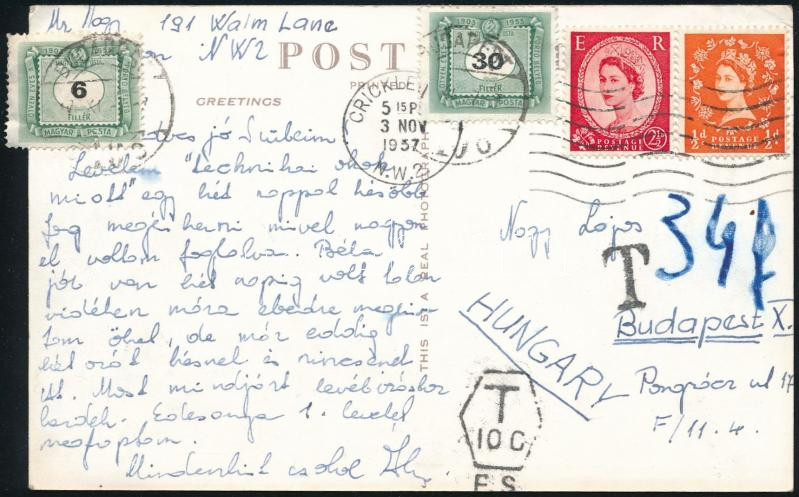 Mr Nagy 191 Walm Lane
London NW2
POST
GREETINGS
1903 1953
6
FILLÉR
MAGYAR POSTA
1903 1953
30
FILLÉR
MAGYAR POSTA
CRICKLEWOOD
5 15 PM
3 NOV
1957
N.W.2.
E R
2½D
POSTAGE REVENUE
½D POSTAGE ½D
Kedves jó Szüleim
Levelem "technikai okok
miatt" egy hét nappal később
fog megérkezni mivel nagyon
el voltam foglalva. Béla
jól van hét napig volt távol
vidéken mára ebédre megérkez
tem őhel, de már eddig
két órát késnek és nincsenek
itt. Most mindjárt levélíráshoz
kezdek. Édesanya 1. levelét
megkaptam.
Mindenkit csókol
THIS IS A REAL PHOTOGRAPH
Nagy Lajos
T
34f
HUNGARY
Budapest X.
Pongrácz út 17
F/11.4.
T
10 C
F.S.